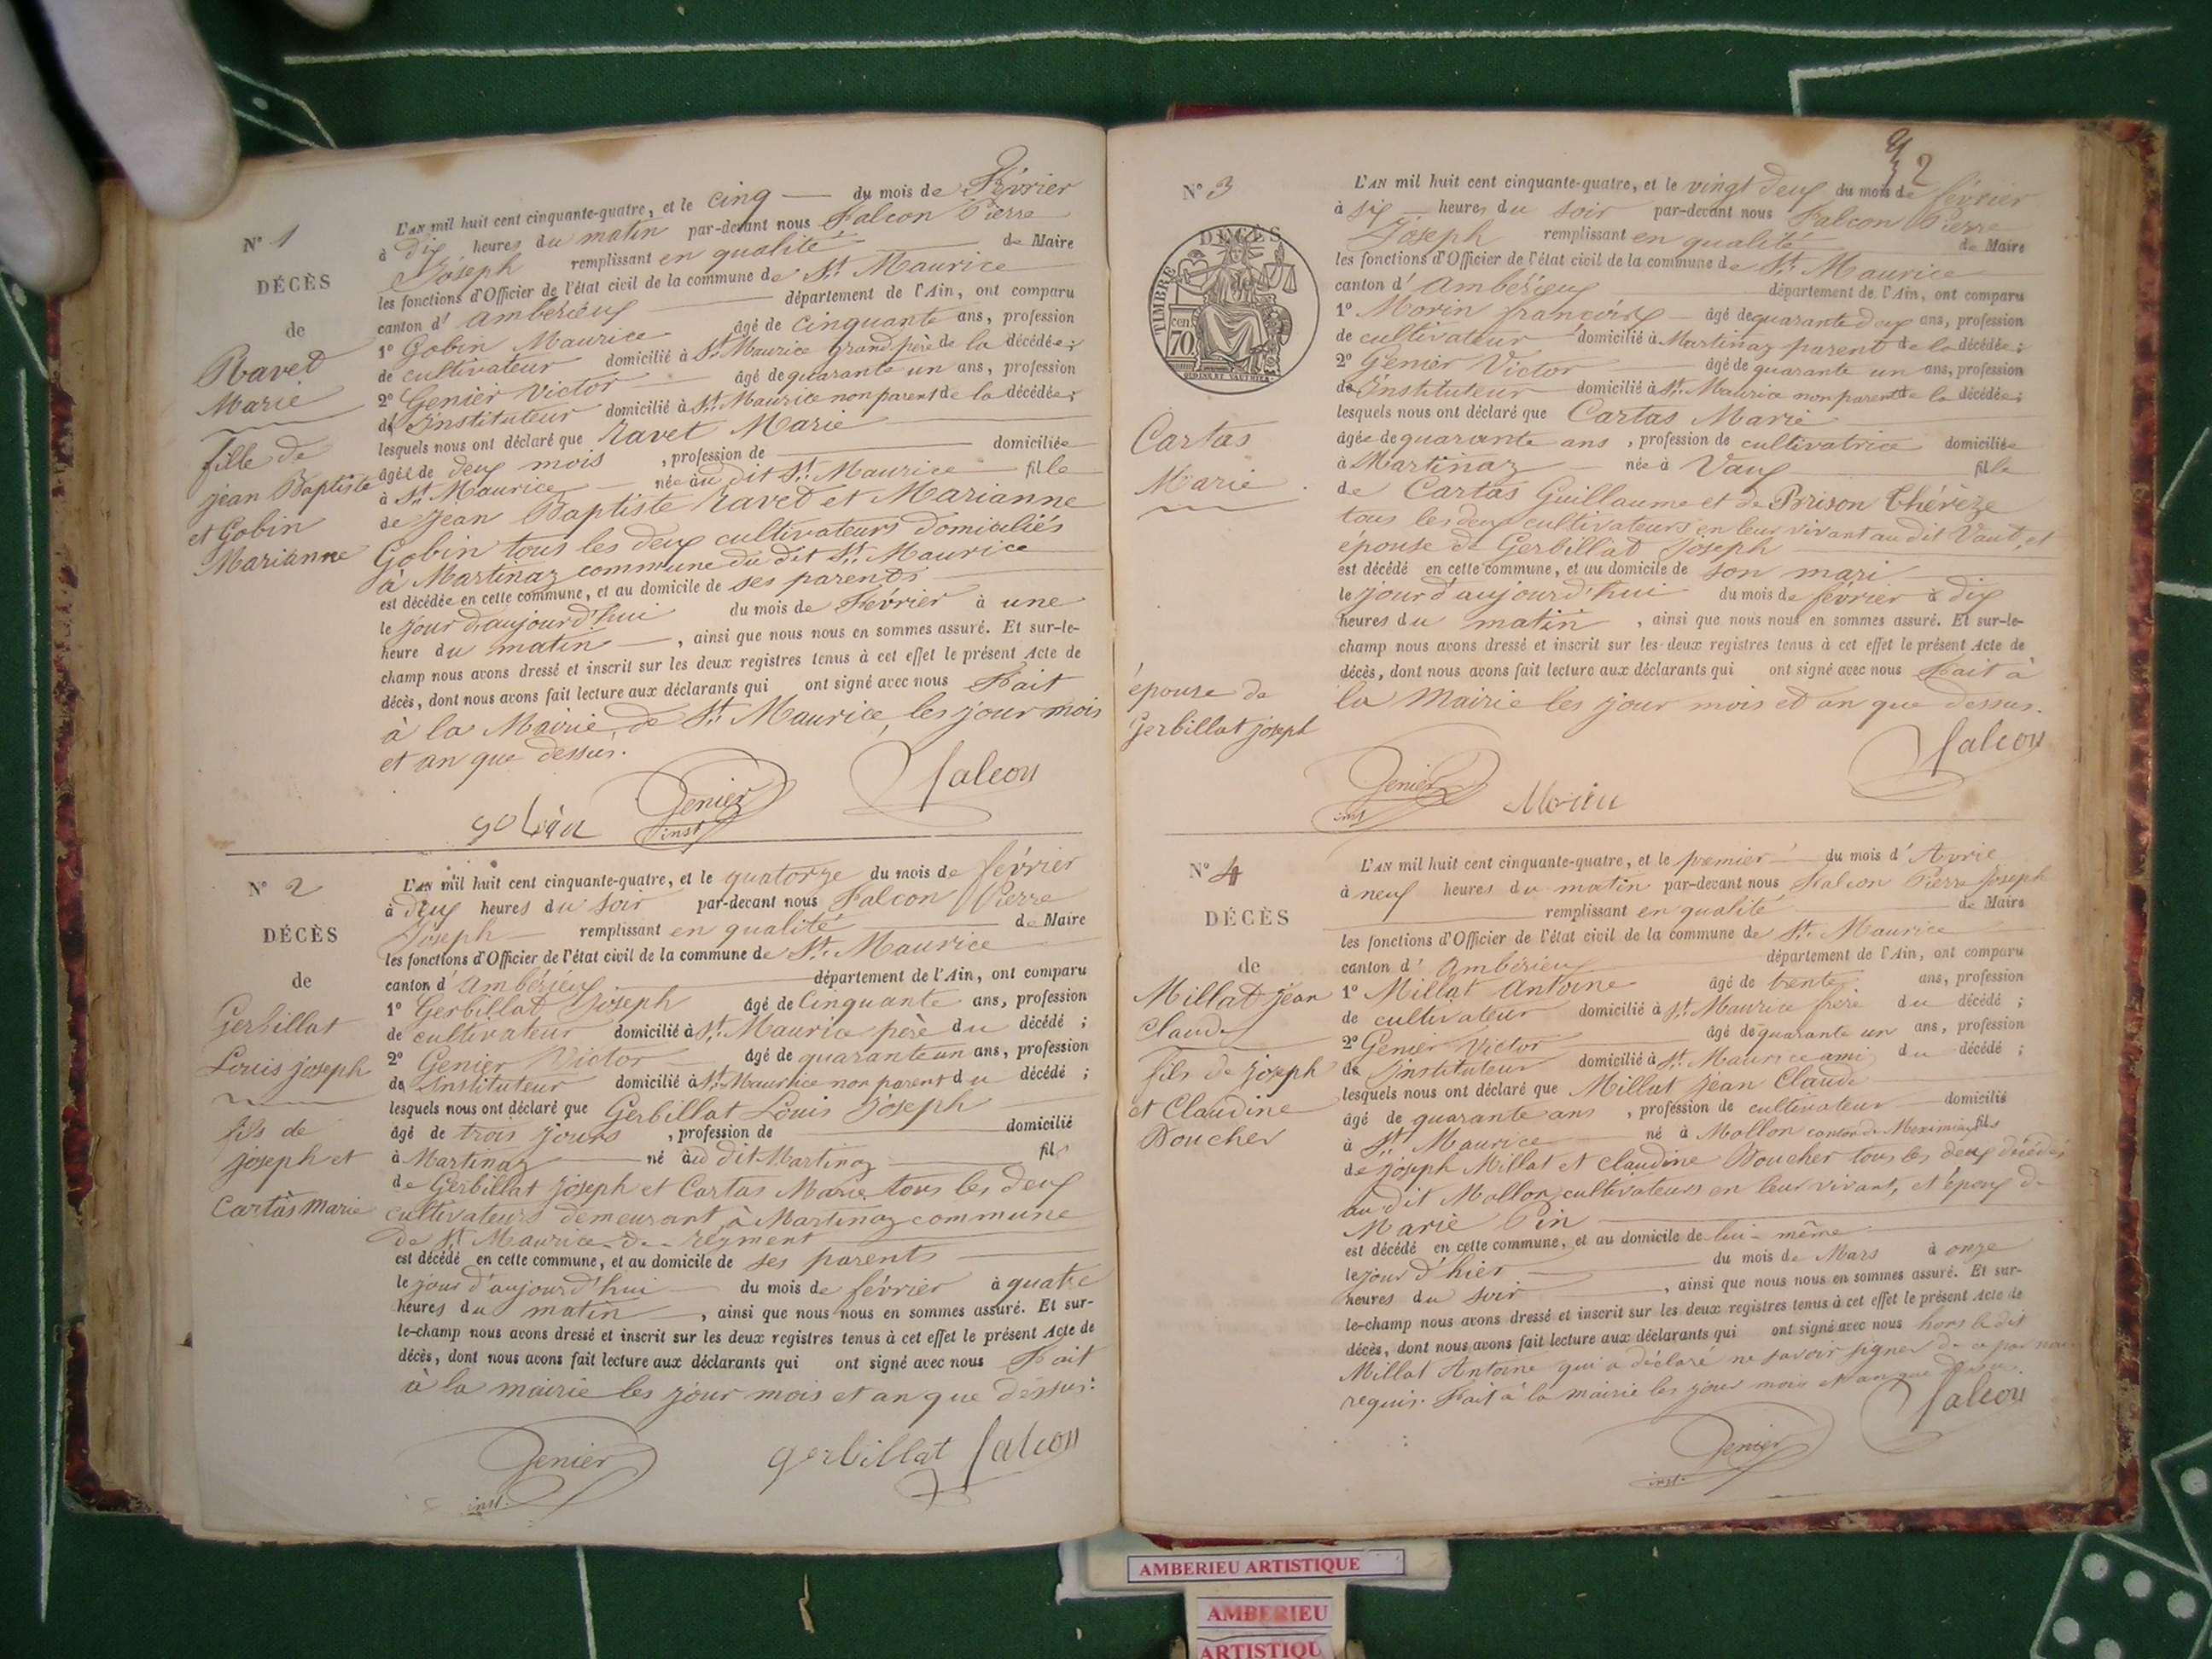 N° 1
DÉCÈS
de
Ravet
Marie
fille de
jean Baptiste
et Gobin
Marianne
L'AN mil huit cent cinquante-quatre, et le cinq du mois de Février
à dix heures du matin par-devant nous Falcon Pierre
Joseph remplissant en qualité de Maire
les fonctions d'Officier de l'état civil de la commune de St. Maurice
canton d' ambérieux département de l'Ain, ont comparu
1° Gobin Maurice âgé de cinquante ans, profession
de cultivateur domicilié à St. Maurice grand père de la décédée;
2° Genier Victor âgé de quarante un ans, profession
de Instituteur domicilié à St. Maurice non parent de la décédée;
lesquels nous ont déclaré que ravet Marie
âgée de deux mois , profession de domiciliée
à St. Maurice née au dit St. Maurice fille
de Jean Baptiste ravet et Marianne
Gobin tous les deux cultivateurs domiciliés
à Martinaz commune du dit St. Maurice
est décédée en cette commune, et au domicile de ses parents
le jour d'aujourd'hui du mois de Février à une
heure du matin , ainsi que nous nous en sommes assuré. Et sur-le-
champ nous avons dressé et inscrit sur les deux registres tenus à cet effet le présent Acte de
décès, dont nous avons fait lecture aux déclarants qui ont signé avec nous Fait
à la Mairie de St. Maurice, les jour mois
et an que dessus.
gobin Genier falcon
inst
N° 2
DÉCÈS
de
Gerbillat
Louis joseph
fils de
joseph et
Cartas Marie
L'AN mil huit cent cinquante-quatre, et le quatorze du mois de février
à deux heures du soir par-devant nous Falcon Pierre
Joseph remplissant en qualité de Maire
les fonctions d'Officier de l'état civil de la commune de St. Maurice
canton d' ambérieux département de l'Ain, ont comparu
1° Gerbillat Joseph âgé de Cinquante ans, profession
de cultivateur domicilié à St. Maurice père du décédé ;
2° Genier Victor âgé de quarante un ans, profession
de Instituteur domicilié à St. Maurice non parent du décédé ;
lesquels nous ont déclaré que Gerbillat Louis Joseph
âgé de trois jours , profession de domicilié
à Martinaz né au dit Martinaz fils
de Gerbillat joseph et Cartas Marie tous les deux
cultivateurs demeurant à Martinaz commune
de St Maurice de
est décédé en cette commune, et au domicile de ses parents
le jour d'aujourd'hui du mois de février à quatre
heures du matin , ainsi que nous nous en sommes assuré. Et sur-
le-champ nous avons dressé et inscrit sur les deux registres tenus à cet effet le présent Acte de
décès, dont nous avons fait lecture aux déclarants qui ont signé avec nous Fait
à la mairie les jour mois et an que dessus.
Genier gerbillat falcon
inst.
2
N° 3
DÉCÈS
TIMBRE
cen
70
Cartas
Marie
épouse de
Gerbillat joseph
L'AN mil huit cent cinquante-quatre, et le vingt deux du mois de février
à six heures du soir par-devant nous Falcon Pierre
Joseph remplissant en qualité de Maire
les fonctions d'Officier de l'état civil de la commune de St. Maurice
canton d' Ambérieux département de l'Ain, ont comparu
1° Morin françois âgé de quarante deux ans, profession
de cultivateur domicilié à Martinaz parent de la décédée;
2° Genier Victor âgé de quarante un ans, profession
de Instituteur domicilié à St. Maurice non parent de la décédée;
lesquels nous ont déclaré que Cartas Marie
âgée de quarante ans , profession de cultivatrice domiciliée
à Martinaz née à Vaux fille
de Cartas Guillaume et de Brison Thérèze
tous les deux cultivateurs en leur vivant au dit Vaux, et
épouse de Gerbillat joseph
est décédé en cette commune, et au domicile de son mari
le jour d'aujourd'hui du mois de février à dix
heures du matin , ainsi que nous nous en sommes assuré. Et sur-le-
champ nous avons dressé et inscrit sur les deux registres tenus à cet effet le présent Acte de
décès, dont nous avons fait lecture aux déclarants qui ont signé avec nous Fait à
la Mairie les jour mois et an que dessus.
Genier Morin falcon
inst
N° 4
DÉCÈS
de
Millat jean
Claude
fils de joseph
et Claudine
Boucher
L'AN mil huit cent cinquante-quatre, et le premier du mois d' Avril
à neuf heures du matin par-devant nous Falcon Pierre Joseph
remplissant en qualité de Maire
les fonctions d'Officier de l'état civil de la commune de St. Maurice
canton d' ambérieux département de l'Ain, ont comparu
1° Millat Antoine âgé de trente ans, profession
de cultivateur domicilié à St Maurice frère du décédé ;
2° Genier Victor âgé de quarante un ans, profession
de Instituteur domicilié à St. Maurice ami du décédé ;
lesquels nous ont déclaré que Millat jean Claude
âgé de quarante ans , profession de cultivateur domicilié
à St. Maurice né à Mollon canton de Meximieux fils
de joseph Millat et Claudine Boucher tous les deux décédés
au dit Mollon, cultivateurs en leur vivant, et époux de
Marie Pin
est décédé en cette commune, et au domicile de lui-même
le jour d'hier du mois de Mars à onze
heures du soir , ainsi que nous nous en sommes assuré. Et sur-
le-champ nous avons dressé et inscrit sur les deux registres tenus à cet effet le présent Acte de
décès, dont nous avons fait lecture aux déclarants qui ont signé avec nous hors le dit
Millat Antoine qui a déclaré ne savoir signer de ce par nous
requis. Fait à la mairie les jour mois et an que dessus.
Genier falcon
inst.
AMBERIEU ARTISTIQUE
AMBERIEU
ARTISTIQU